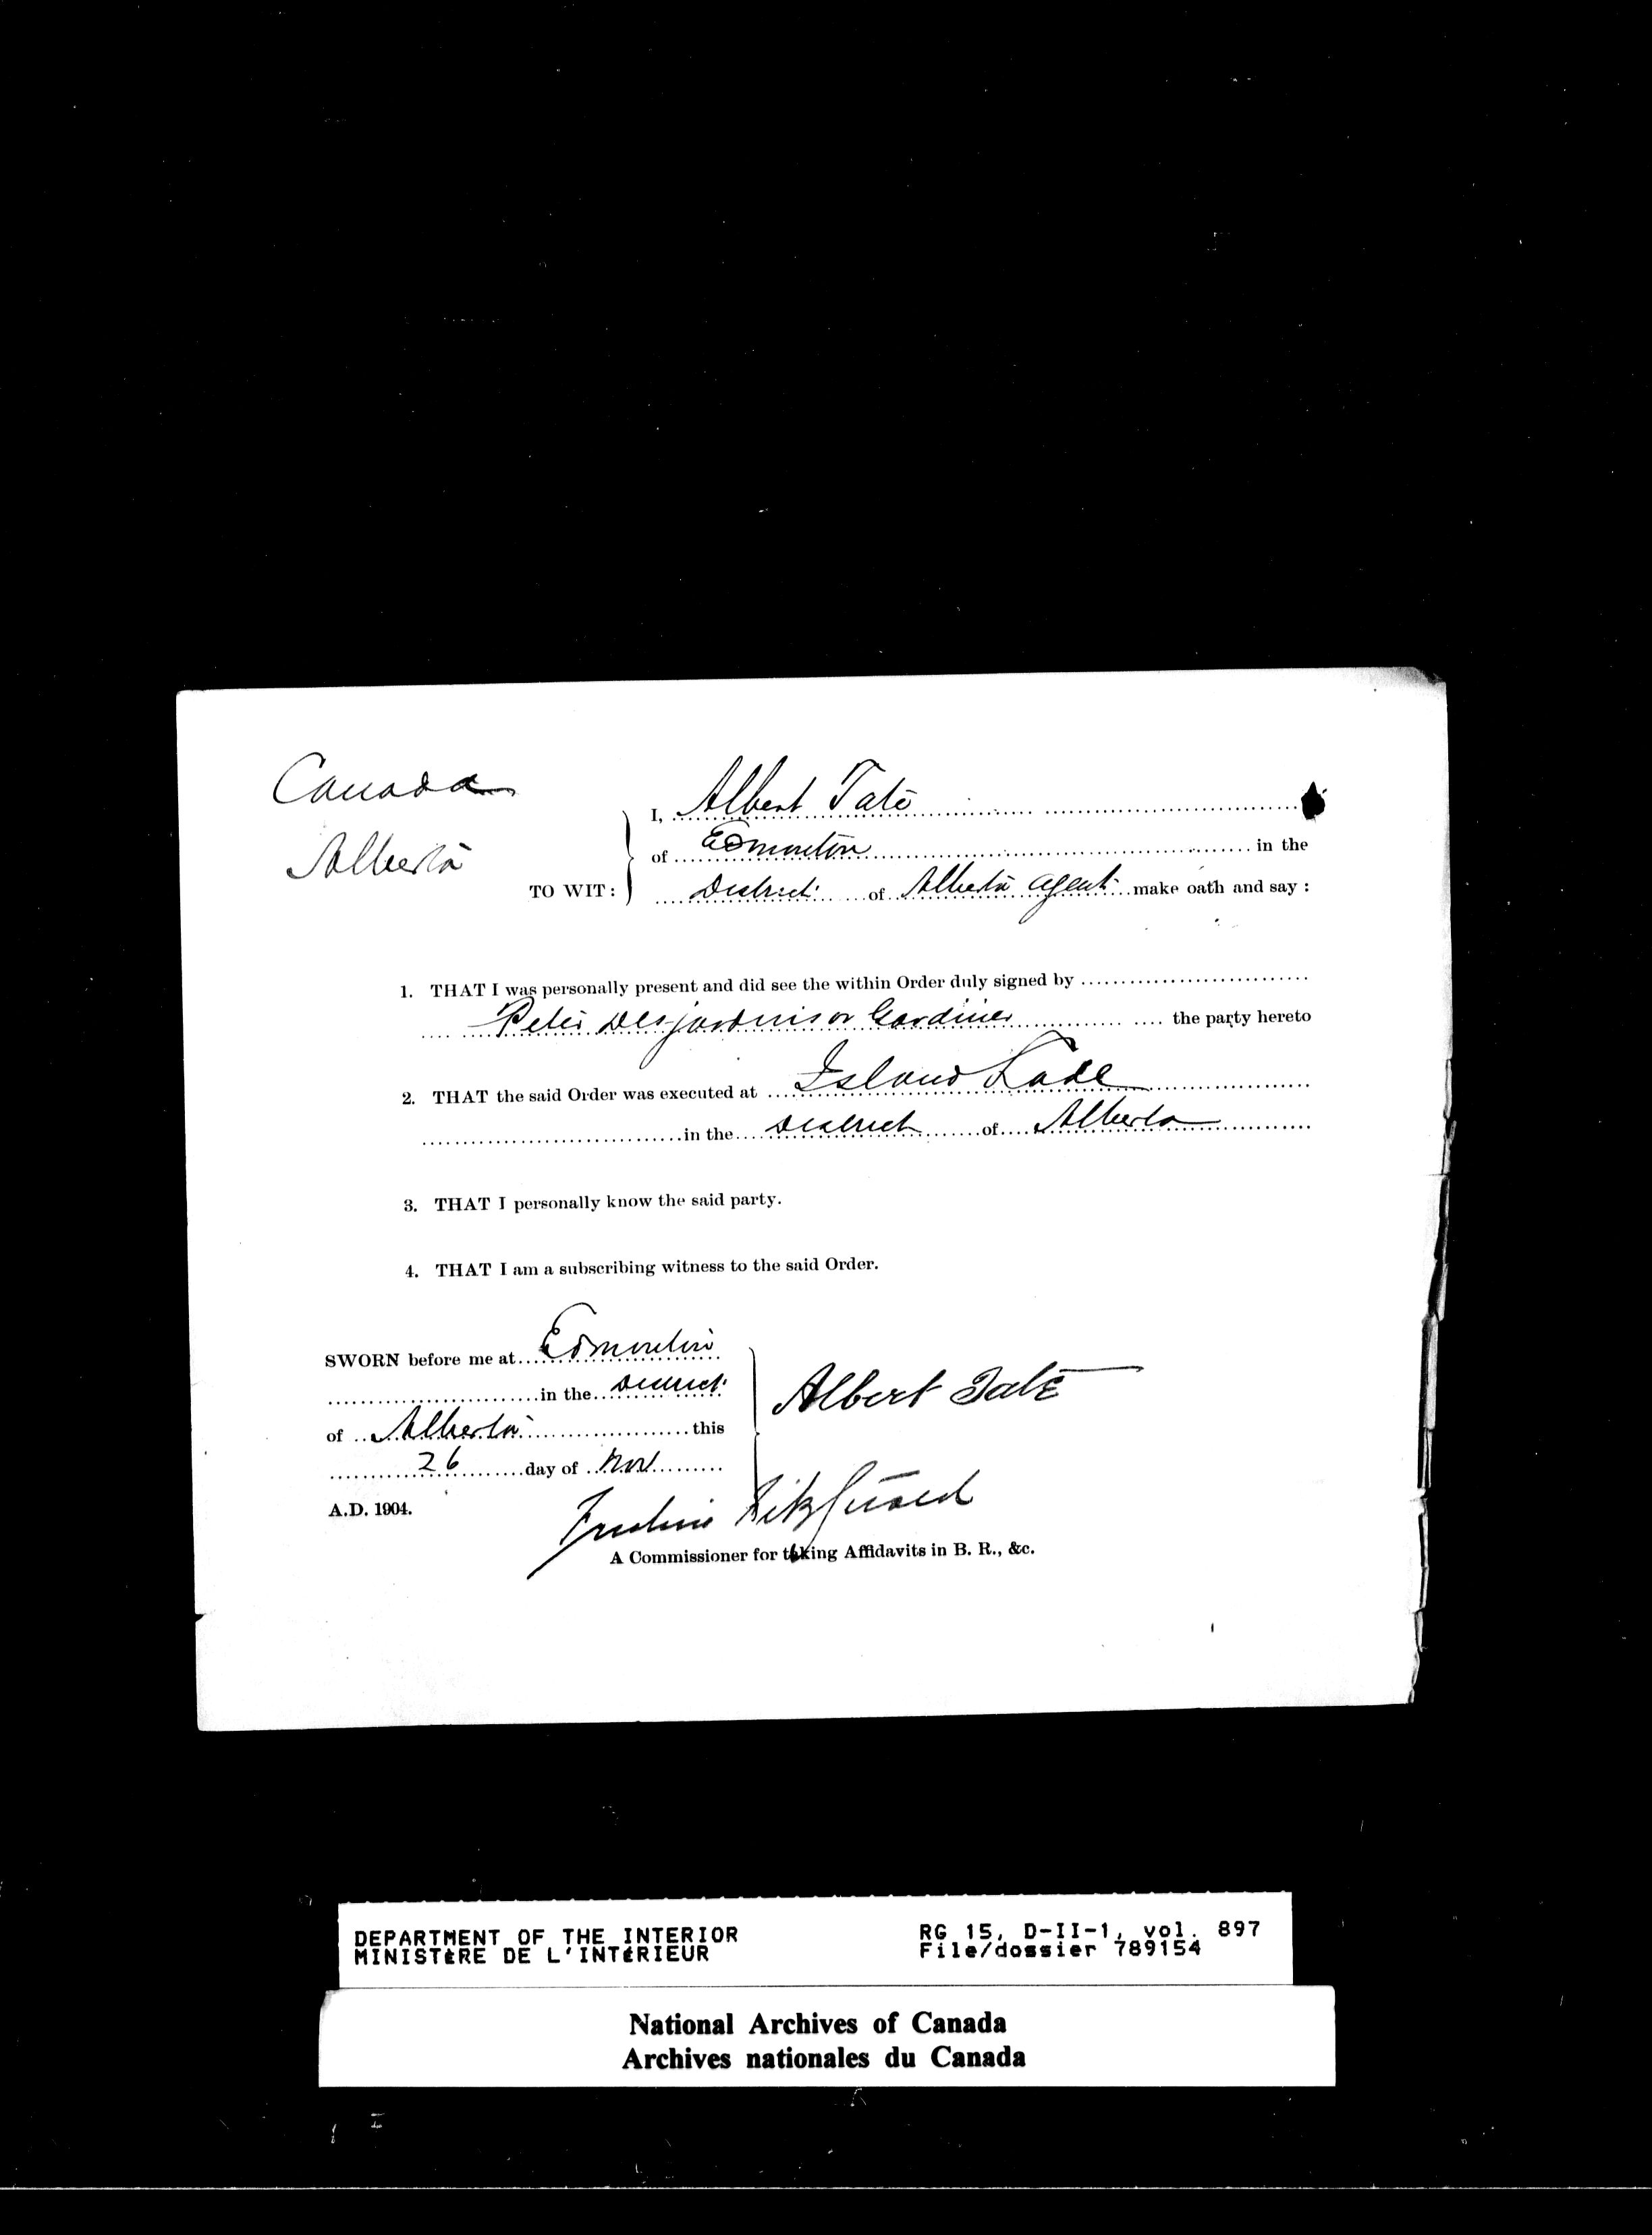 Canada
Alberta
TO WIT:
I, Albert Tate
of Edmonton in the
District of Alberta Agent make oath and say :
1. THAT I was personally present and did see the within Order duly signed by
Peter Desjardins or Gardiner the party hereto
2. THAT the said Order was executed at Island Lake
in the District of Alberta
3. THAT I personally know the said party.
4. THAT I am a subscribing witness to the said Order.
SWORN before me at Edmonton
in the District
of Alberta this
26 day of Nov
A.D. 1904.
Albert Tate
FitzGerald
A Commissioner for taking Affidavits in B. R., &c.
DEPARTMENT OF THE INTERIOR
MINISTÈRE DE L'INTÉRIEUR
RG 15, D-II-1, vol. 897
File/dossier 789154
National Archives of Canada
Archives nationales du Canada